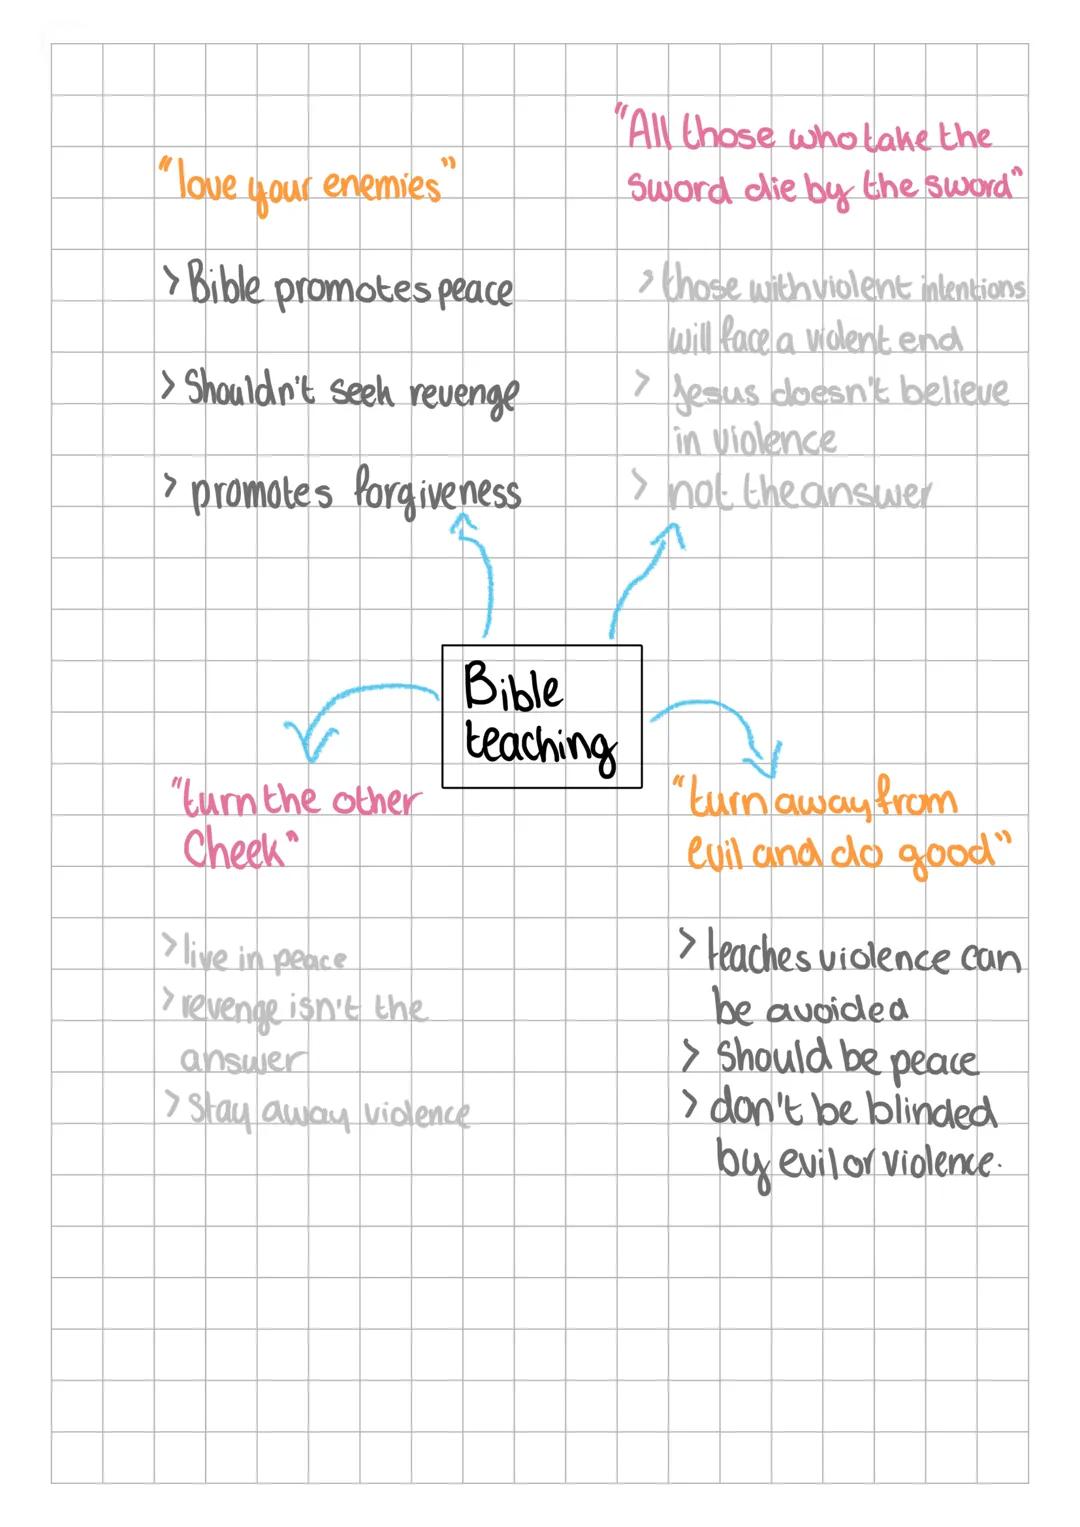 "love your enemies"
> Bible promotes peace
> Shouldn't seek revenge
> promotes forgiveness
"All those who take the
sword die by the sword"
> those with violent intentions
will face a violent end
> Jesus doesn't believe
in violence
> not the answer
Bible
teaching
"turn the other
Cheek"
> live in peace
> revenge isn't the
answer
> Stay away violence
"turn away from
evil and do good"
> teaches violence can
be avoided
> Should be peace
> don't be blinded
by evil or violence.